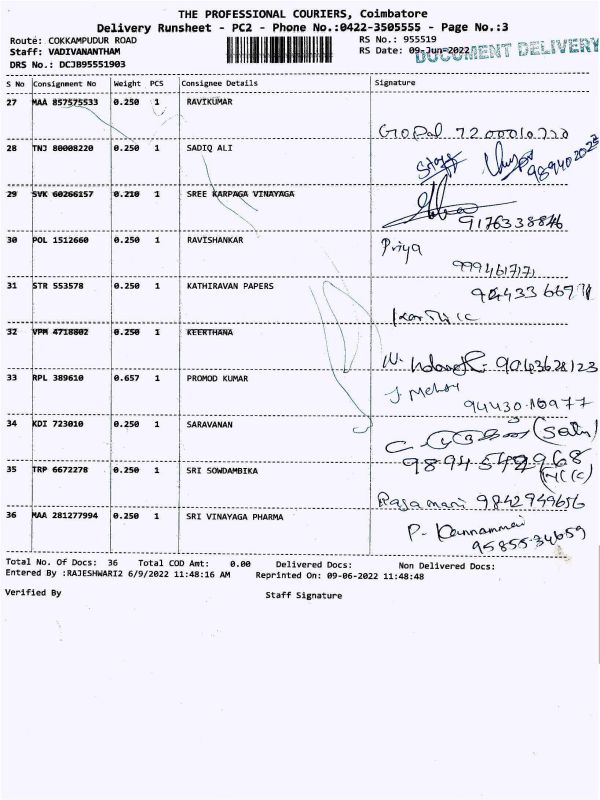 THE PROFESSIONAL COURIERS, Coimbatore
Delivery Runsheet - PC2 - Phone No.:0422-3505555 - Page No.:3
Route: COKKAMPUDUR ROAD RS No.: 955519
Staff: VADIVANANTHAM RS Date: 09-Jun-2022 DOCUMENT DELIVERY
DRS No.: DCJB95551903
S No Consignment No Weight PCS Consignee Details Signature
27 MAA 857575533 0.250 1 RAVIKUMAR
Gopal
28 TNJ 80008220 0.250 1 SADIQ ALI
Staff
29 SVK 60266157 0.210 1 SREE KARPAGA VINAYAGA
9176338846
30 POL 1512660 0.250 1 RAVISHANKAR Priya
31 STR 553578 0.250 1 KATHIRAVAN PAPERS
32 VPM 4718802 0.250 1 KEERTHANA
9043628123
33 RPL 389610 0.657 1 PROMOD KUMAR
34 KDI 723010 0.250 1 SARAVANAN
35 TRP 6672278 0.250 1 SRI SOWDAMBIKA
Rajamani 9842949656
36 MAA 281277994 0.250 1 SRI VINAYAGA PHARMA P.
Total No. Of Docs: 36 Total COD Amt: 0.00 Delivered Docs: Non Delivered Docs:
Entered By :RAJESHWARI2 6/9/2022 11:48:16 AM Reprinted On: 09-06-2022 11:48:48
Verified By Staff Signature